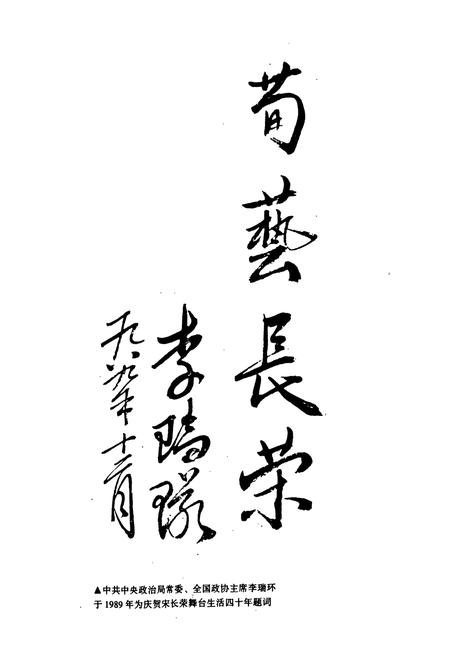 荀藝長荣
李瑞環
一九八九年十二月
▲中共中央政治局常委、全国政协主席李瑞环
于1989年为庆贺宋长荣舞台生活四十年题词